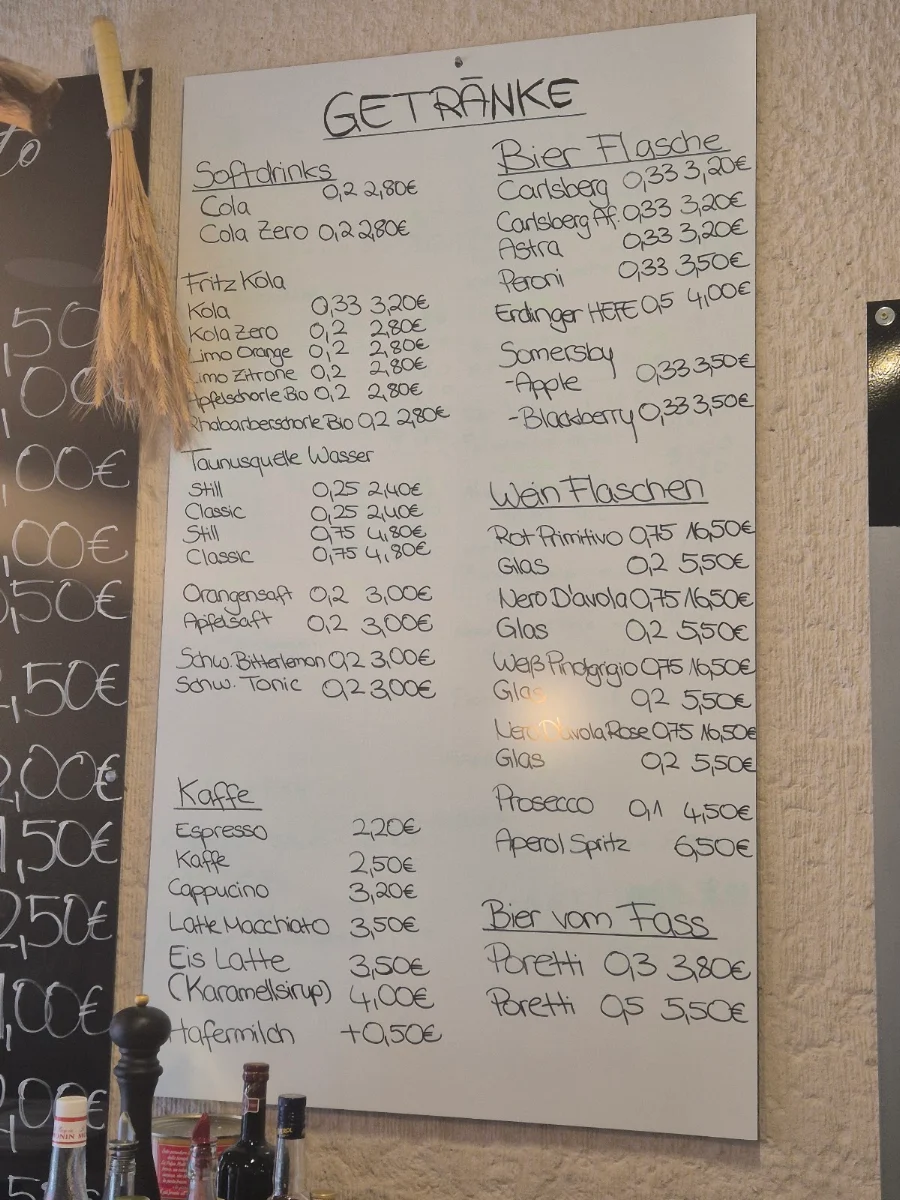 GETRÄNKE
Softdrinks
Cola 0,2 2,80€
Cola Zero 0,2 2,80€
Fritz Kola
Kola 0,33 3,20€
Kola Zero 0,2 2,80€
Limo Orange 0,2 2,80€
Limo Zitrone 0,2 2,80€
Apfelschorle Bio 0,2 2,80€
Rhabarberschorle Bio 0,2 2,80€
Taunusquelle Wasser
Still 0,25 2,40€
Classic 0,25 2,40€
Still 0,75 4,80€
Classic 0,75 4,80€
Orangensaft 0,2 3,00€
Apfelsaft 0,2 3,00€
Schw. Bitterlemon 0,2 3,00€
Schw. Tonic 0,2 3,00€
Kaffe
Espresso 2,20€
Kaffe 2,50€
Cappucino 3,20€
Latte Macchiato 3,50€
Eis Latte 3,50€
(Karamellsirup) 4,00€
Hafermilch +0,50€
Bier Flasche
Carlsberg 0,33 3,20€
Carlsberg Af. 0,33 3,20€
Astra 0,33 3,20€
Peroni 0,33 3,50€
Erdinger HEFE 0,5 4,00€
Somersby
-Apple 0,33 3,50€
-Blackberry 0,33 3,50€
Wein Flaschen
Rot Primitivo 0,75 16,50€
Glas 0,2 5,50€
Nero D'avola 0,75 16,50€
Glas 0,2 5,50€
Weiß Pinotgrigio 0,75 16,50€
Glas 0,2 5,50€
Nero D'avola Rose 0,75 16,50€
Glas 0,2 5,50€
Prosecco 0,1 4,50€
Aperol Spritz 6,50€
Bier vom Fass
Poretti 0,3 3,80€
Poretti 0,5 5,50€
,50
,00
,00€
,00€
,50€
,50€
2,00€
1,50€
2,50€
1,00€